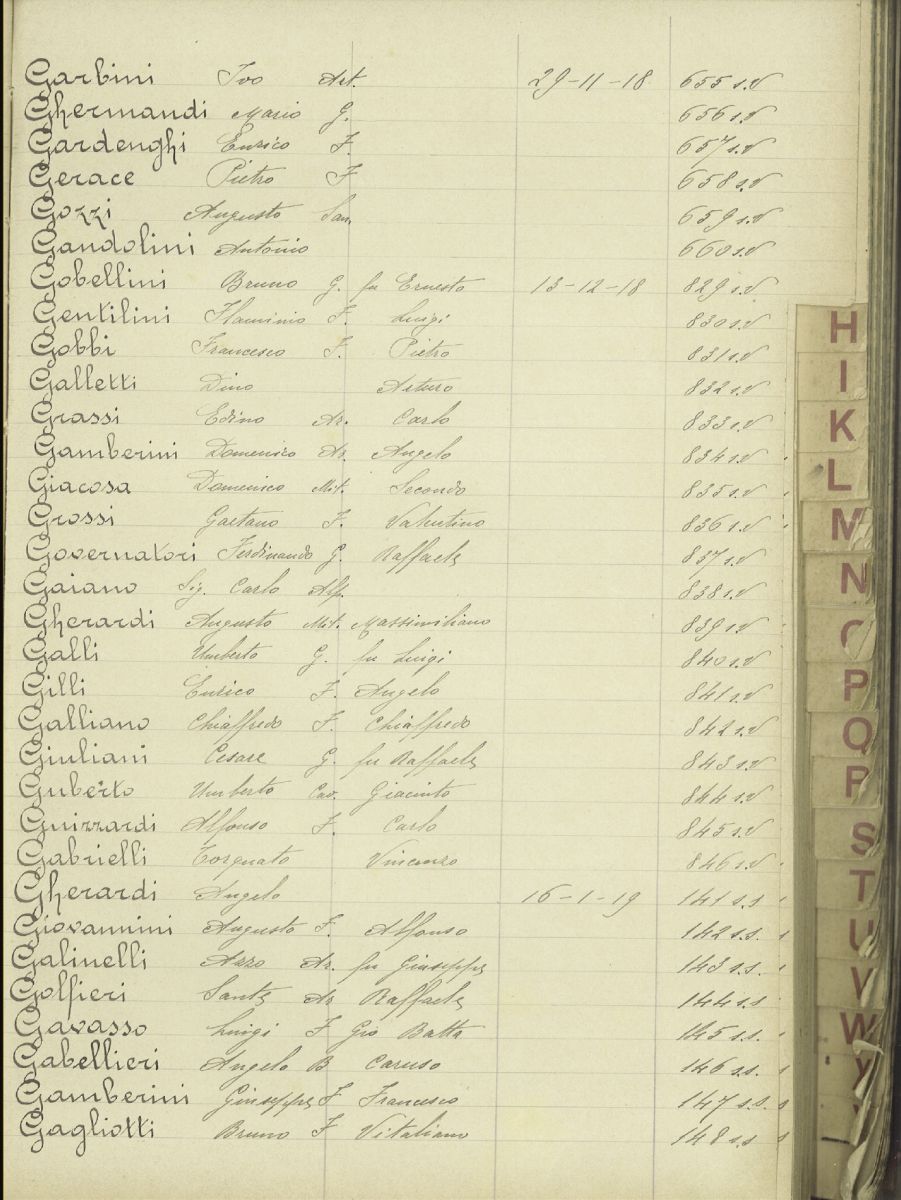 Garbini Ivo Art. 29-11-18 655 s.v
Ghermandi Mario G. 656 s.v
Gardenghi Enrico F. 657 s.v
Gerace Pietro F 658 s.v
Gozzi Augusto San. 659 s.v
Gandolini Antonio 660 s.v
Gobellini Bruno G. fu Ernesto 13-12-18 829 s.v
Gentilini Flaminio F. Luigi 830 s.v
Gobbi Francesco F. Pietro 831 s.v
Galletti Dino Arturo 832 s.v
Grassi Edino Ar. Carlo 833 s.v
Gamberini Domenico Ar. Angelo 834 s.v
Giacosa Domenico Mit. Secondo 835 s.v
Grossi Gaetano F. Valentino 836 s.v
Governatori Ferdinando G. Raffaele 837 s.v
Gaiano Sig. Carlo Alp. 838 s.v
Gherardi Augusto Mit. Massimiliano 839 s.v
Galli Umberto G. fu Luigi 840 s.v
Gilli Enrico F. Angelo 841 s.v
Galliano Chiaffredo F. Chiaffredo 842 s.v
Giuliani Cesare G. fu Raffaele 843 s.v
Guberto Umberto Cav. Giacinto 844 s.v
Guizzardi Alfonso F. Carlo 845 s.v
Gabrielli Torquato Vincenzo 846 s.v
Gherardi Angelo 16-1-19 141 s.s
Giovannini Augusto F. Alfonso 142 s.s.
Galinelli Azzo Ar. fu Giuseppe 143 s.s.
Golfieri Sante Ar Raffaele 144 s.s
Gavasso Luigi F Gio Batta 145 s.s.
Gabellieri Angelo B Caruso 146 s.s.
Gamberini Giuseppe F Francesco 147 s.s.
Gagliotti Bruno F Vitaliano 148 s.s
H
I
K
L
M
N
O
P
Q
R
S
T
U
V
W
Y